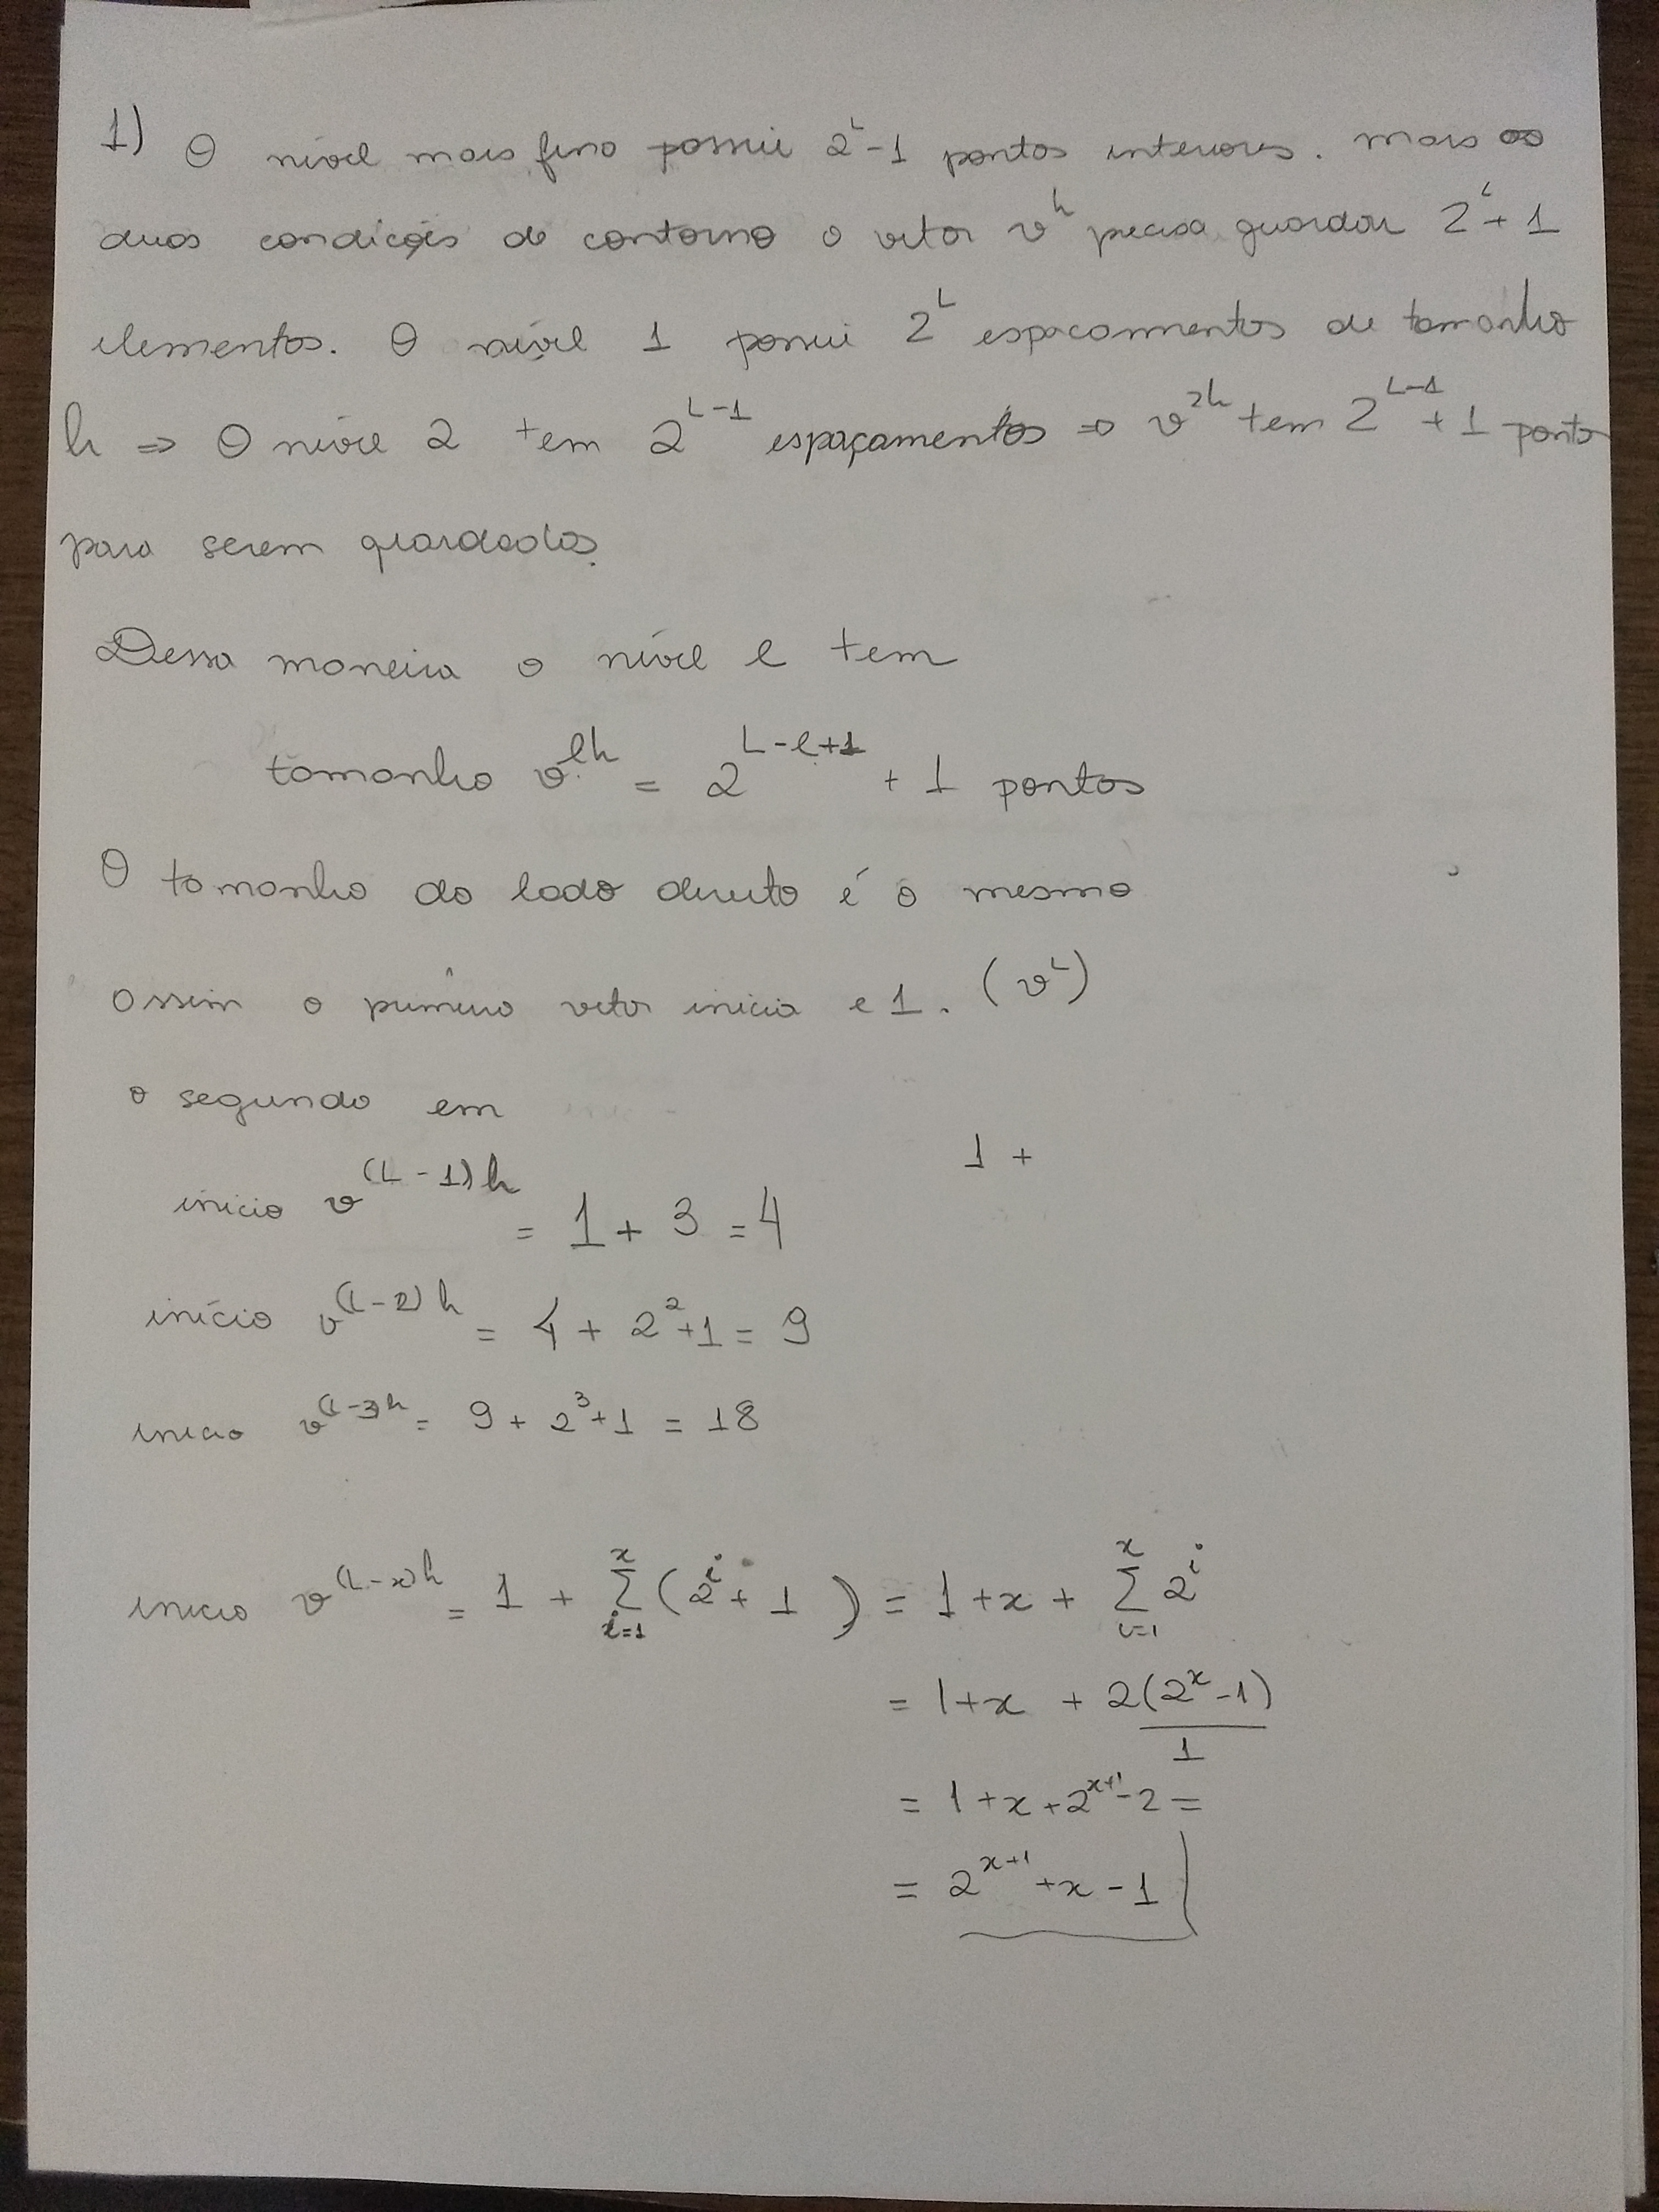 1) O nível mais fino possui 2^L - 1 pontos interiores. Mais as
duas condições de contorno o vetor v^h precisa guardar 2^L + 1
elementos. O nível 1 possui 2^L espaçamentos de tamanho
h ⇒ O nível 2 tem 2^(L-1) espaçamentos ⇒ v^(2h) tem 2^(L-1) + 1 ponto
para serem guardados.
Dessa maneira o nível l tem
tamanho v^(lh) = 2^(L-l+1) + 1 pontos
O tamanho do lado direito é o mesmo
assim o primeiro vetor inicia e 1. (v^L)
o segundo em
1 +
início v^((L-1)h) = 1 + 3 = 4
início v^((L-2)h) = 4 + 2^2 + 1 = 9
inicio v^((L-3)h) = 9 + 2^3 + 1 = 18
inicio v^((L-x)h) = 1 + Σ_{i=1}^{x} (2^i + 1) = 1 + x + Σ_{i=1}^{x} 2^i
= 1 + x + 2(2^x - 1)/1
= 1 + x + 2^(x+1) - 2 =
= 2^(x+1) + x - 1